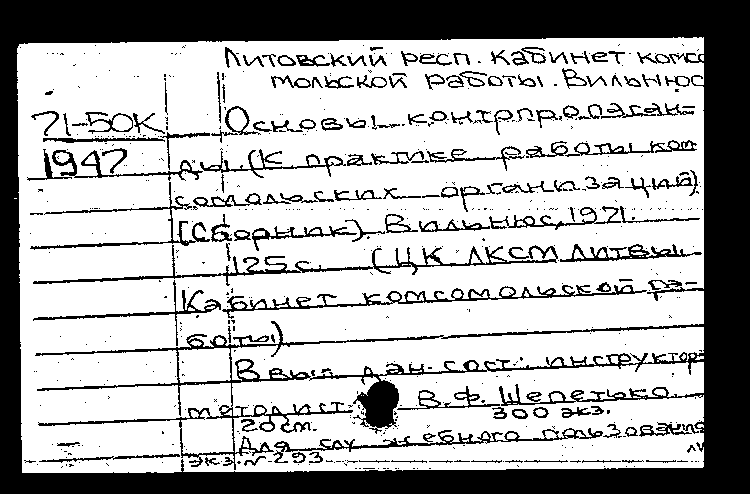 Литовский респ. кабинет комсо
мольской работы. Вильнюс
71-50К
Основы контрпропаган-
1947
ды. (К практике работы ком
сомольских организаций)
[Сборник]. Вильнюс, 1971.
125 с. (ЦК ЛКСМ Литвы.
Кабинет комсомольской ра-
боты)
В вып. дан. сост.: инструктор-
методист В.Ф. Шепетько.
20 см. 300 экз.
Для служебного пользования
экз. № 293